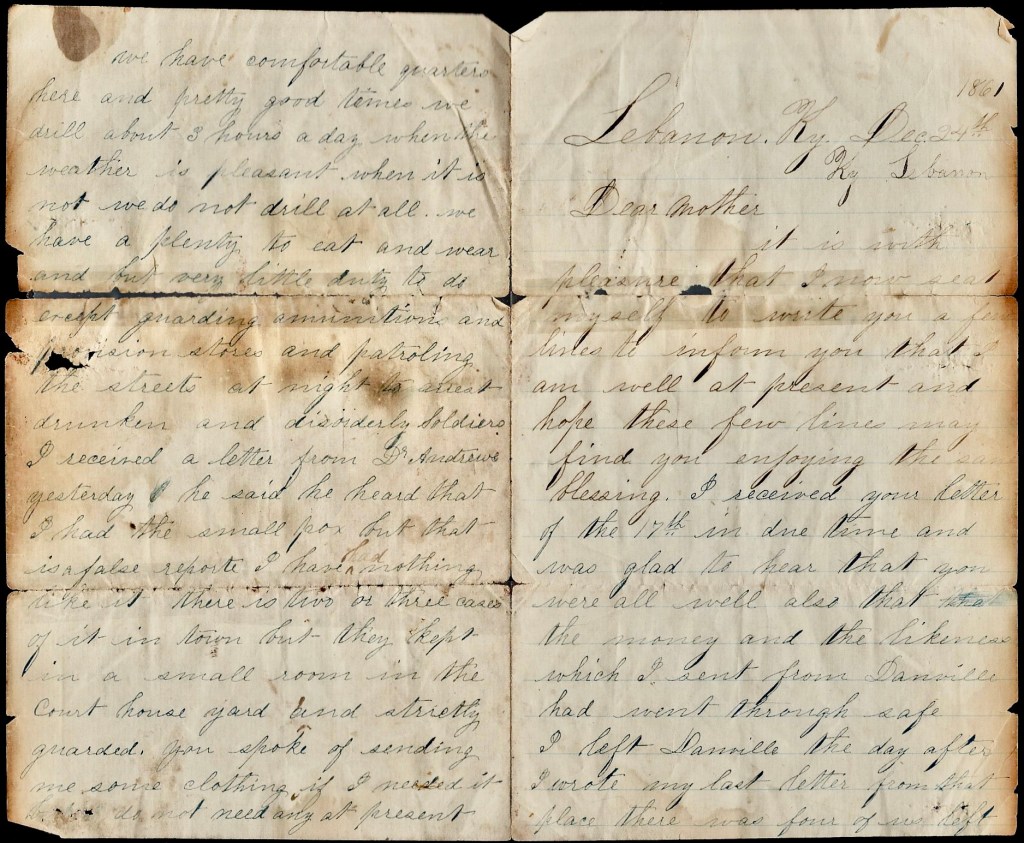 1861
Lebanon. Ky. Dec. 24th
Ky Lebanon
Dear Mother
it is with
pleasure that I now seat
myself to write you a few
lines to inform you that I
am well at present and
hope these few lines may
find you enjoying the same
blessing. I received your letter
of the 17th in due time and
was glad to hear that you
were all well also that that
the money and the likeness
which I sent from Danville
had went through safe
I left Danville the day after
I wrote my last letter from that
place there was four of us left
we have comfortable quarters
here and pretty good times we
drill about 3 hours a day when the
weather is pleasant when it is
not we do not drill at all. we
have a plenty to eat and wear
and but very little duty to do
except guarding amunitions and
provision stores and patroling
the streets at night to arrest
drunken and disorderly Soldiers
I received a letter from Dr Andrews
yesterday he said he heard that
I had the small pox but that
is a false reporte I have had nothing
like it there is two or three cases
of it in town but they kept
in a small room in the
Court house yard and strictly
guarded. you spoke of sending
me some clothing if I needed it
do not need any at present